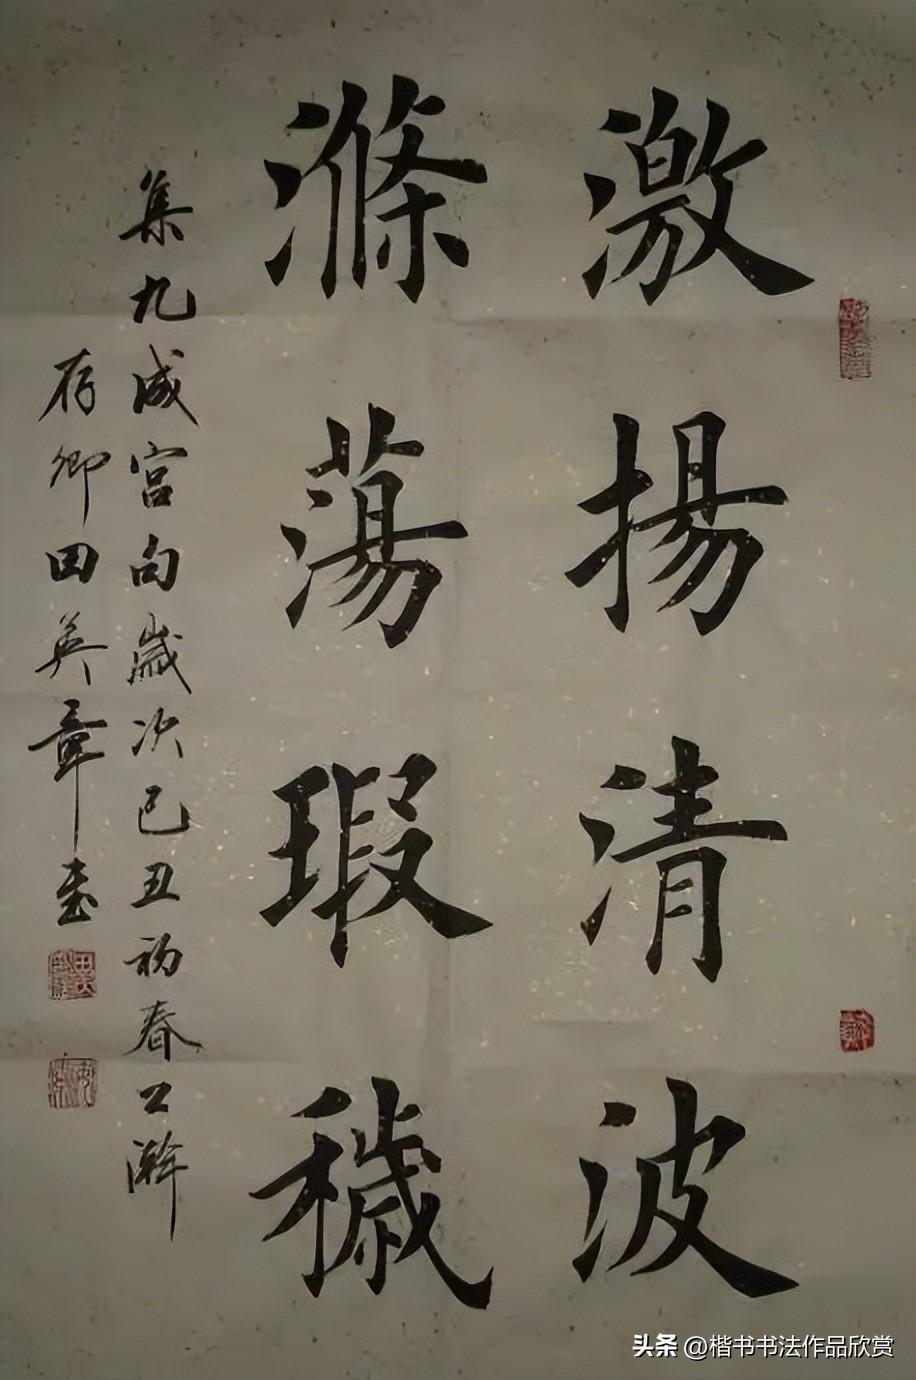 激揚清波
滌蕩瑕穢
集九成宮句歲次己丑初春公瀚
存卿田英章書
头条 @楷书书法作品欣赏